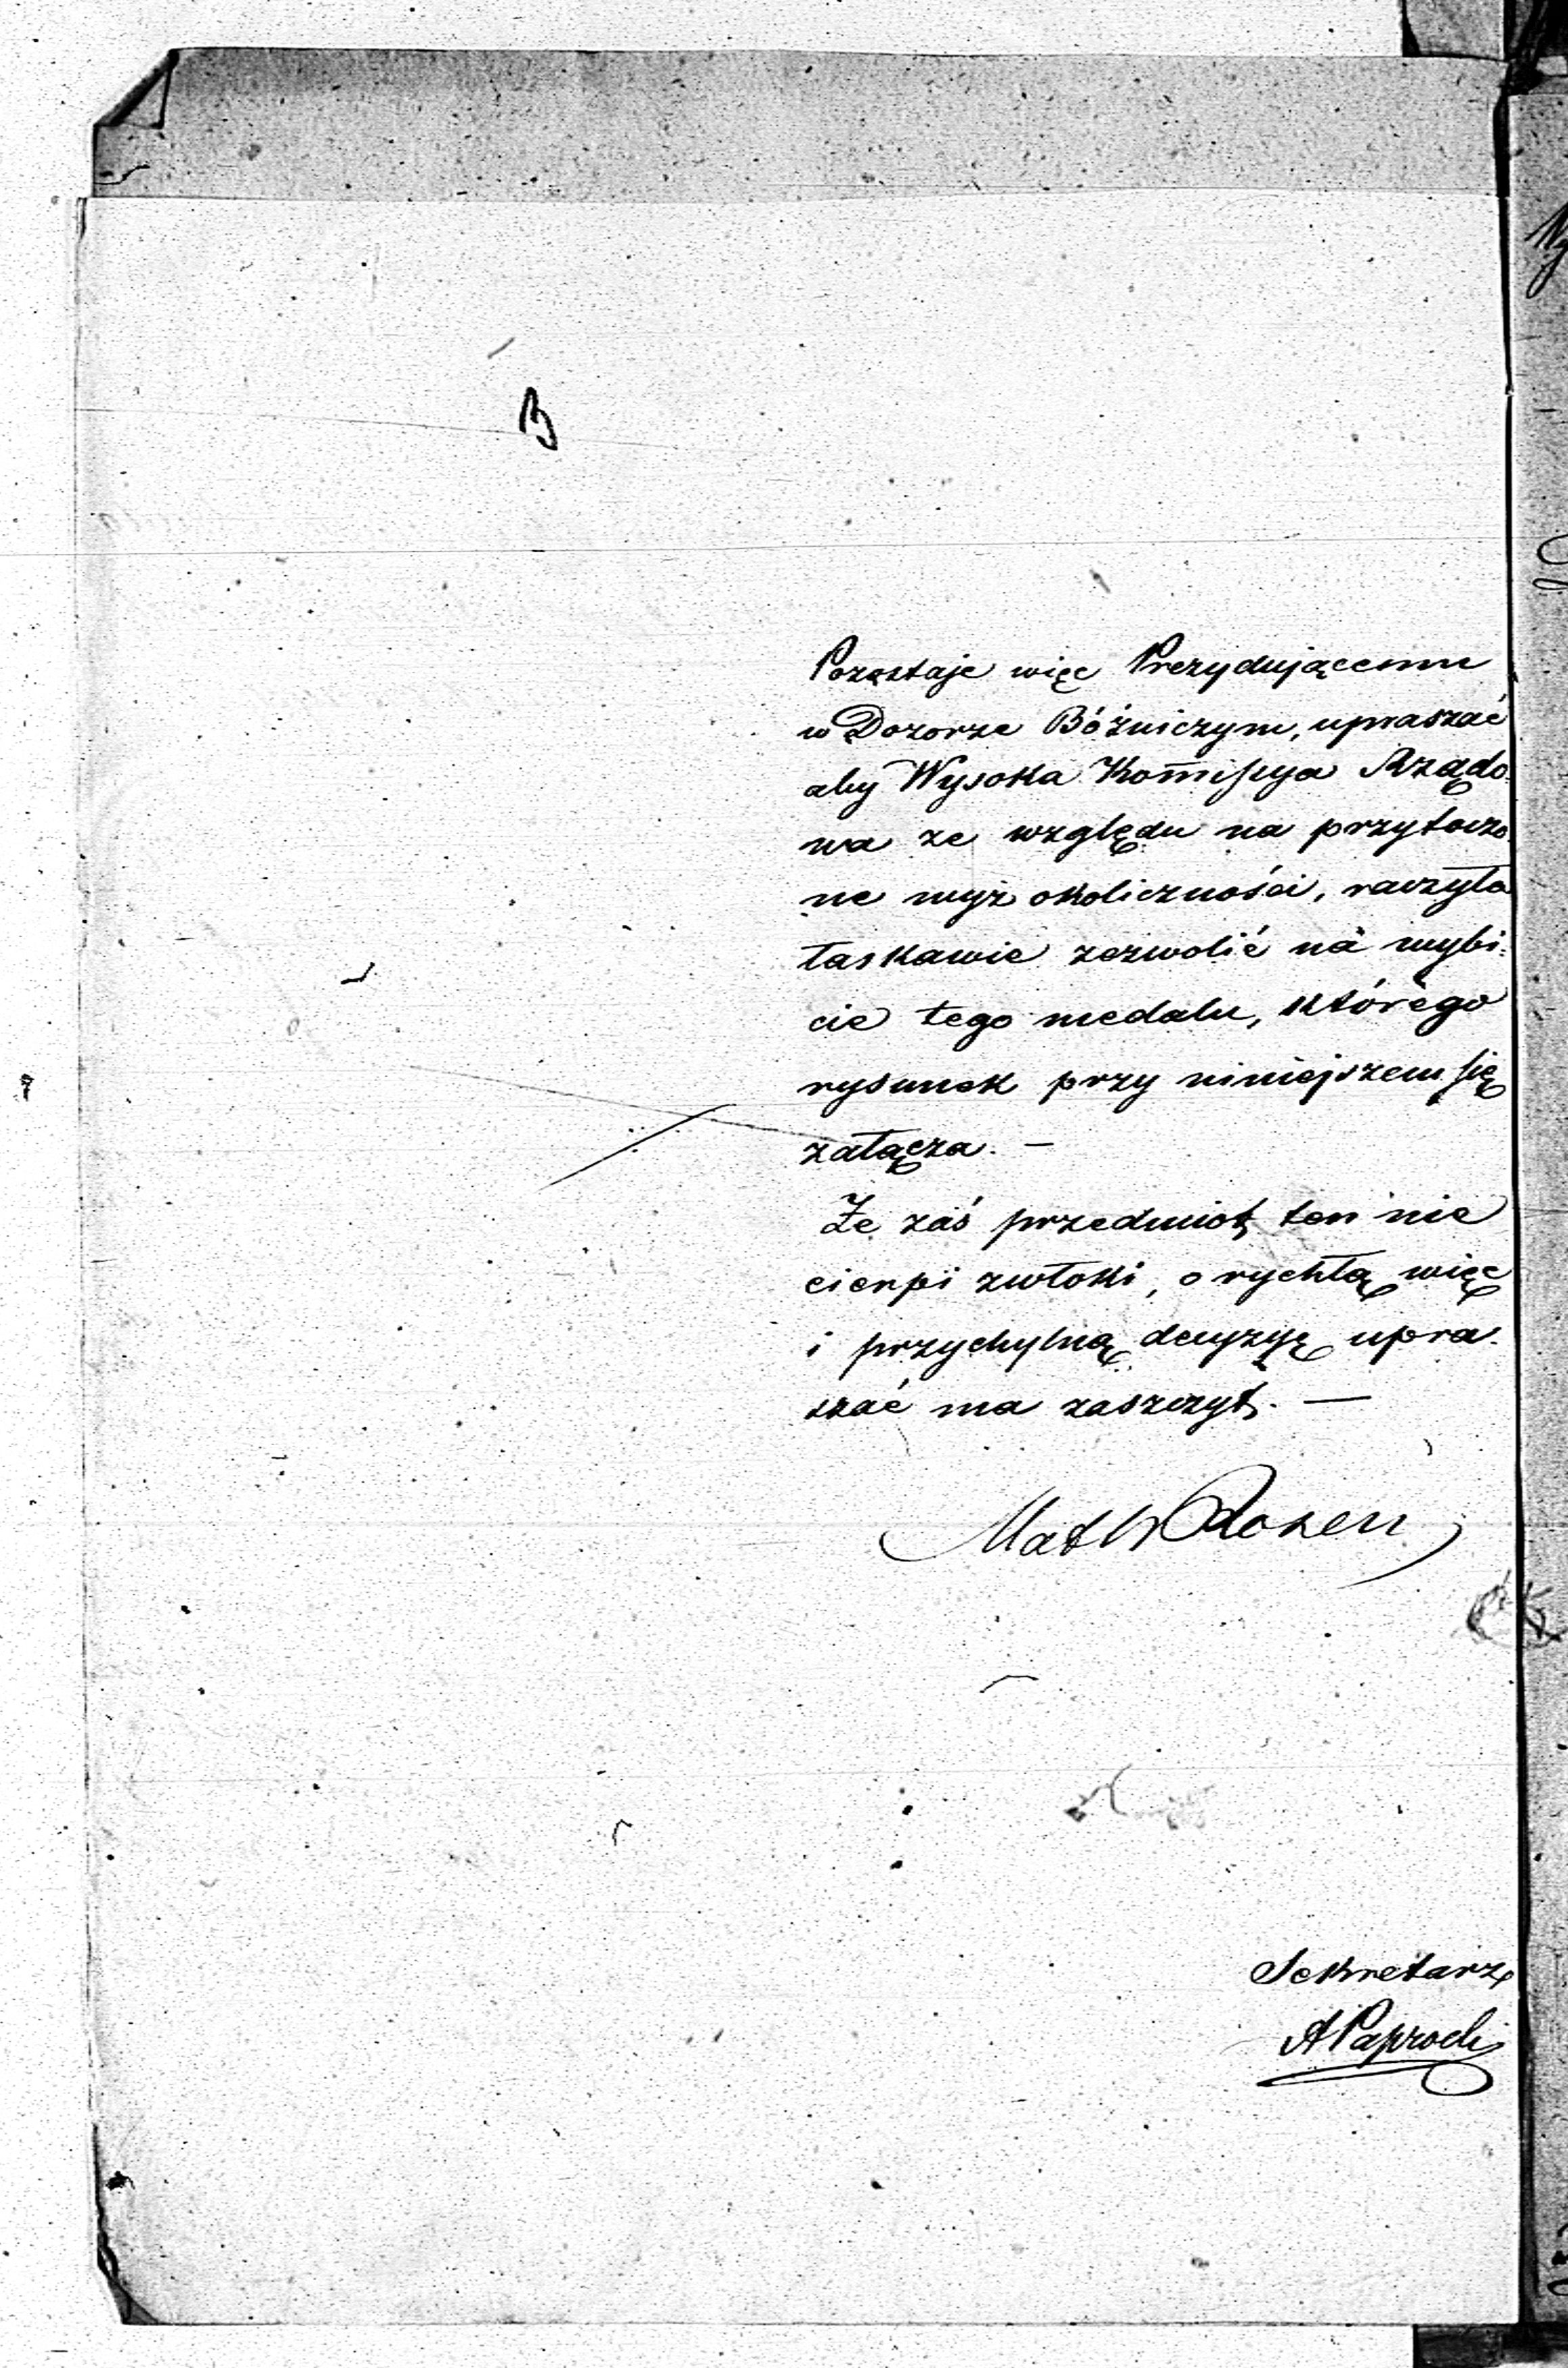 B
Pozostaje więc Prezydującemu
w Dozorze Bóźniczym, upraszać
aby Wysoka Kom̄issya Rządo-
wa ze względu na przytoczo-
ne wyż okoliczności, raczyła
łaskawie zezwolić na wybi-
cie tego medalu, którego
rysunek przy niniejszem się
załącza. —
Że zaś przedmiot ten nie
cierpi zwłoki, o rychłą więc
i przychylną decyzyę upra-
szać ma zaszczyt. —
Math Rosen
Sekretarz
A Paprocki